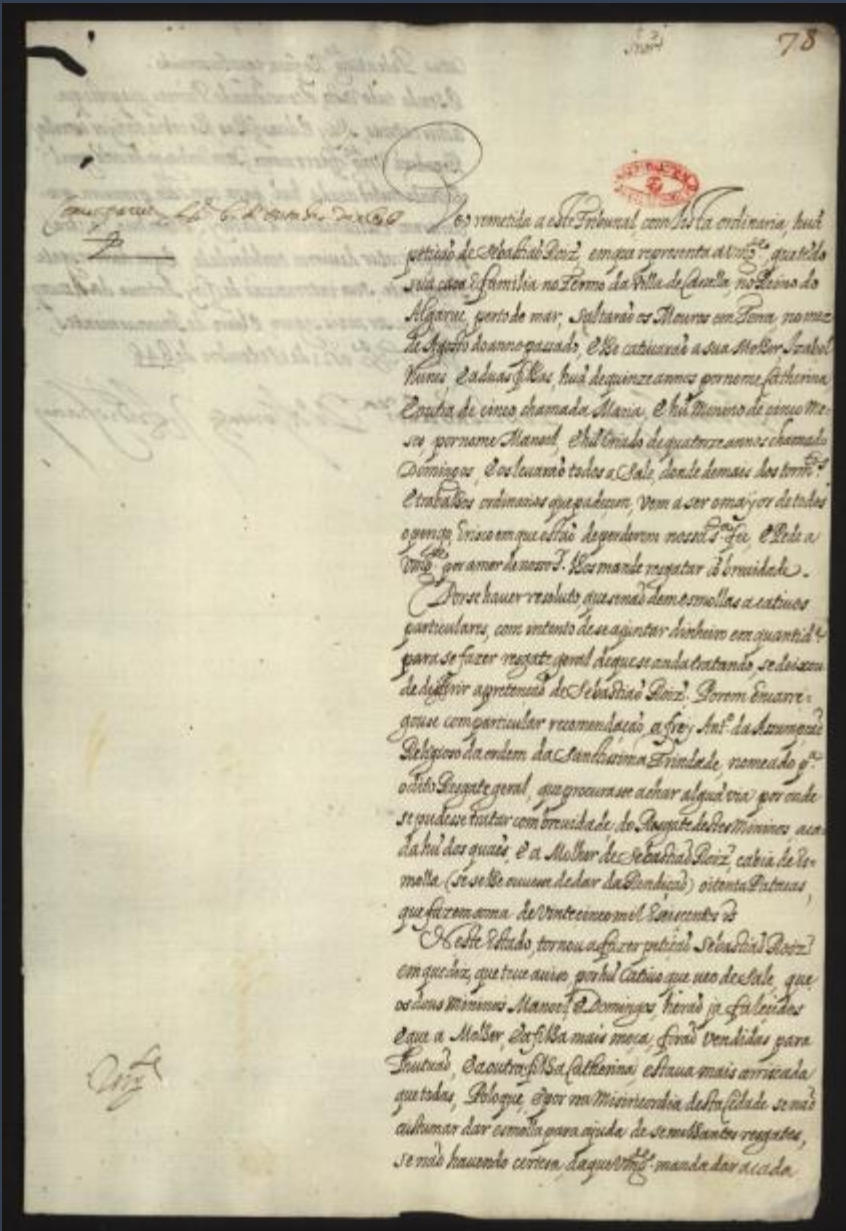 78
Veo remetida a este Tribunal com Consulta ordinaria, huã
petição de Sebastião Roiz, em que representa a VMg.de, que tẽdo
sua casa e familia no Termo da Villa de Casella, no Reino do
Algarue, perto do mar, saltarão os Mouros em Terra, no mez
de Agosto do anno passado, e lhe catiuarão a sua Molher Izabel
Nunes, e a duas filhas, huã de quinze annos por nome Catherina
e outra de cinco chamada Maria, e hũ Menino de cinco me-
ses, por nome Manoel, e hũ Criado de quatorze annos chamado
Domingos, e os leuarão todos a Sale, donde demaes dos torm.tos
e trabalhos ordinarios que padecem, vem a ser o mayor de todos
o perigo, e risco em que estão de perderem nossa S.ta fee, e Pede a
VMg.de por amor de nosso S.r lhos mande resgatar cõ breuidade.
Por se hauer resoluto, que se não dem esmollas a catiuos
particulares, com intento de se ajuntar dinheiro em quantid.e
para se fazer resgate geral de que se anda tratando, se deixou
de differir a pretensão de Sebastião Roiz. Porem encarre-
gouse com particular recomendação, a frey Ant.o da Assumpção
Religioso da ordem da Santissima Trindade, nomeado p.a
o dito Resgate geral, que procurasse achar alguã via por onde
se pudesse tratar com breuidade, do Resgate destes Mininos, a ca-
da hũ dos quaes, e a Molher de Sebastião Roiz, cabia de es-
molla (se se lhe ouuesse de dar da Rendição) oitenta Patacas,
que fazem soma de Vinte cinco mil e seiscentos rs
Neste Estado, tornou a fazer petição Sebastião Roiz
em que diz, que teue auiso, por hũ Catiuo que veo de Sale, que
os dous Mininos Manoel, e Domingos, herão ja falecidos
e que a Molher, e a filha mais moça, forão vendidas para
Tutuão, e a outra filha Catherina, estaua mais arriscada
que todas, Pelo que, e por na Misericordia desta Cidade se não
custumar dar esmolla para ajuda de semelhantes resgates,
se não hauendo certesa, da que VMg.de manda dar a cada